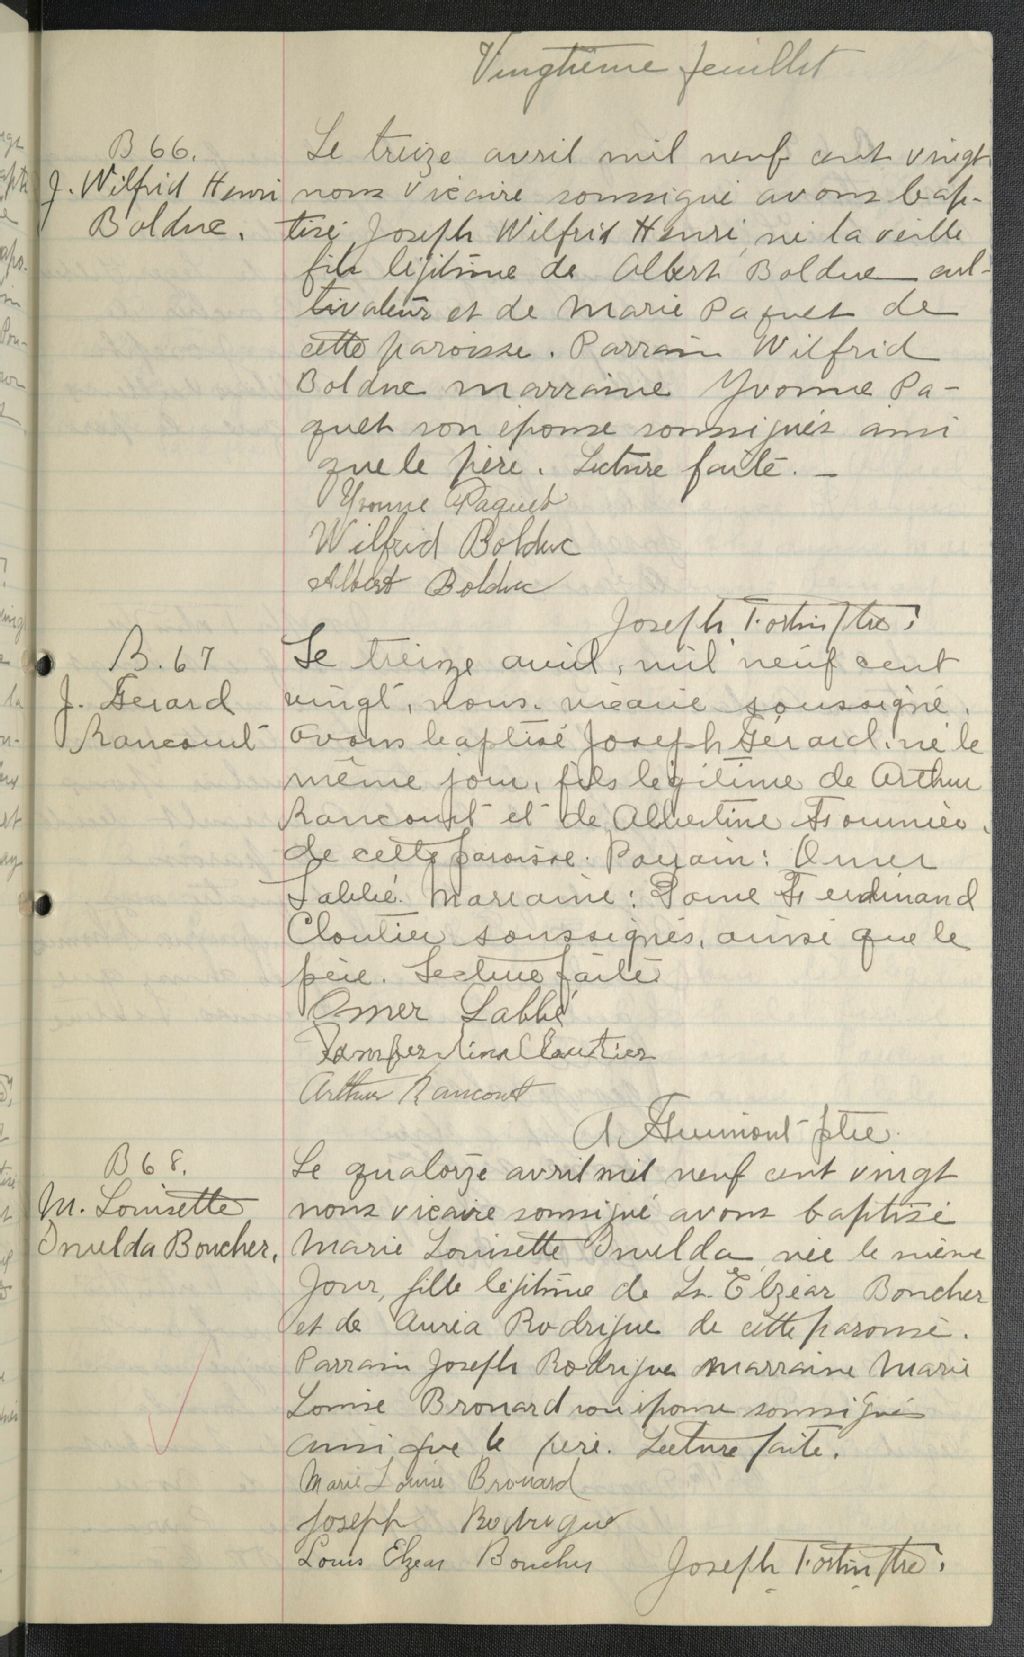 Vingtième feuillet
B 66.
J. Wilfrid Henri
Bolduc.
Le treize avril mil neuf cent vingt
nous vicaire soussigné avons bap-
tisé Joseph Wilfrid Henri né la veille
fils légitime de Albert Bolduc cul-
tivateur et de Marie Paquet de
cette paroisse. Parrain Wilfrid
Bolduc marraine Yvonne Pa-
quet son épouse soussignés ainsi
que le père. Lecture faite. –
Yvonne Paquet
Wilfrid Bolduc
Albert Bolduc
Joseph Fortin ptre:
B. 67
J. Gérard
Rancourt
Le treize avril, mil neuf cent
vingt, nous, vicaire soussigné,
avons baptisé Joseph Gérard, né le
même jour, fils légitime de Arthur
Rancourt et de Albertine Fournier,
de cette paroisse. Parrain: Omer
Labbé. Marraine: Dame Ferdinand
Cloutier soussignés, ainsi que le
père. Lecture faite
Omer Labbé
Cloutier
Arthur Rancourt
A ptre.
B 68.
M. Louisette
Imelda Boucher.
Le quatorze avril mil neuf cent vingt
nous vicaire soussigné avons baptisé
Marie Louisette Imelda née le même
jour, fille légitime de Ls. Elzéar Boucher
et de Auréa Rodrigue de cette paroisse.
Parrain Joseph Rodrigue marraine Marie
Louise Brouard son épouse soussignés
ainsi que le père. Lecture faite.
Marie Louise Brouard
Joseph Rodrigue
Louis Elzear Boucher
Joseph Fortin ptre: